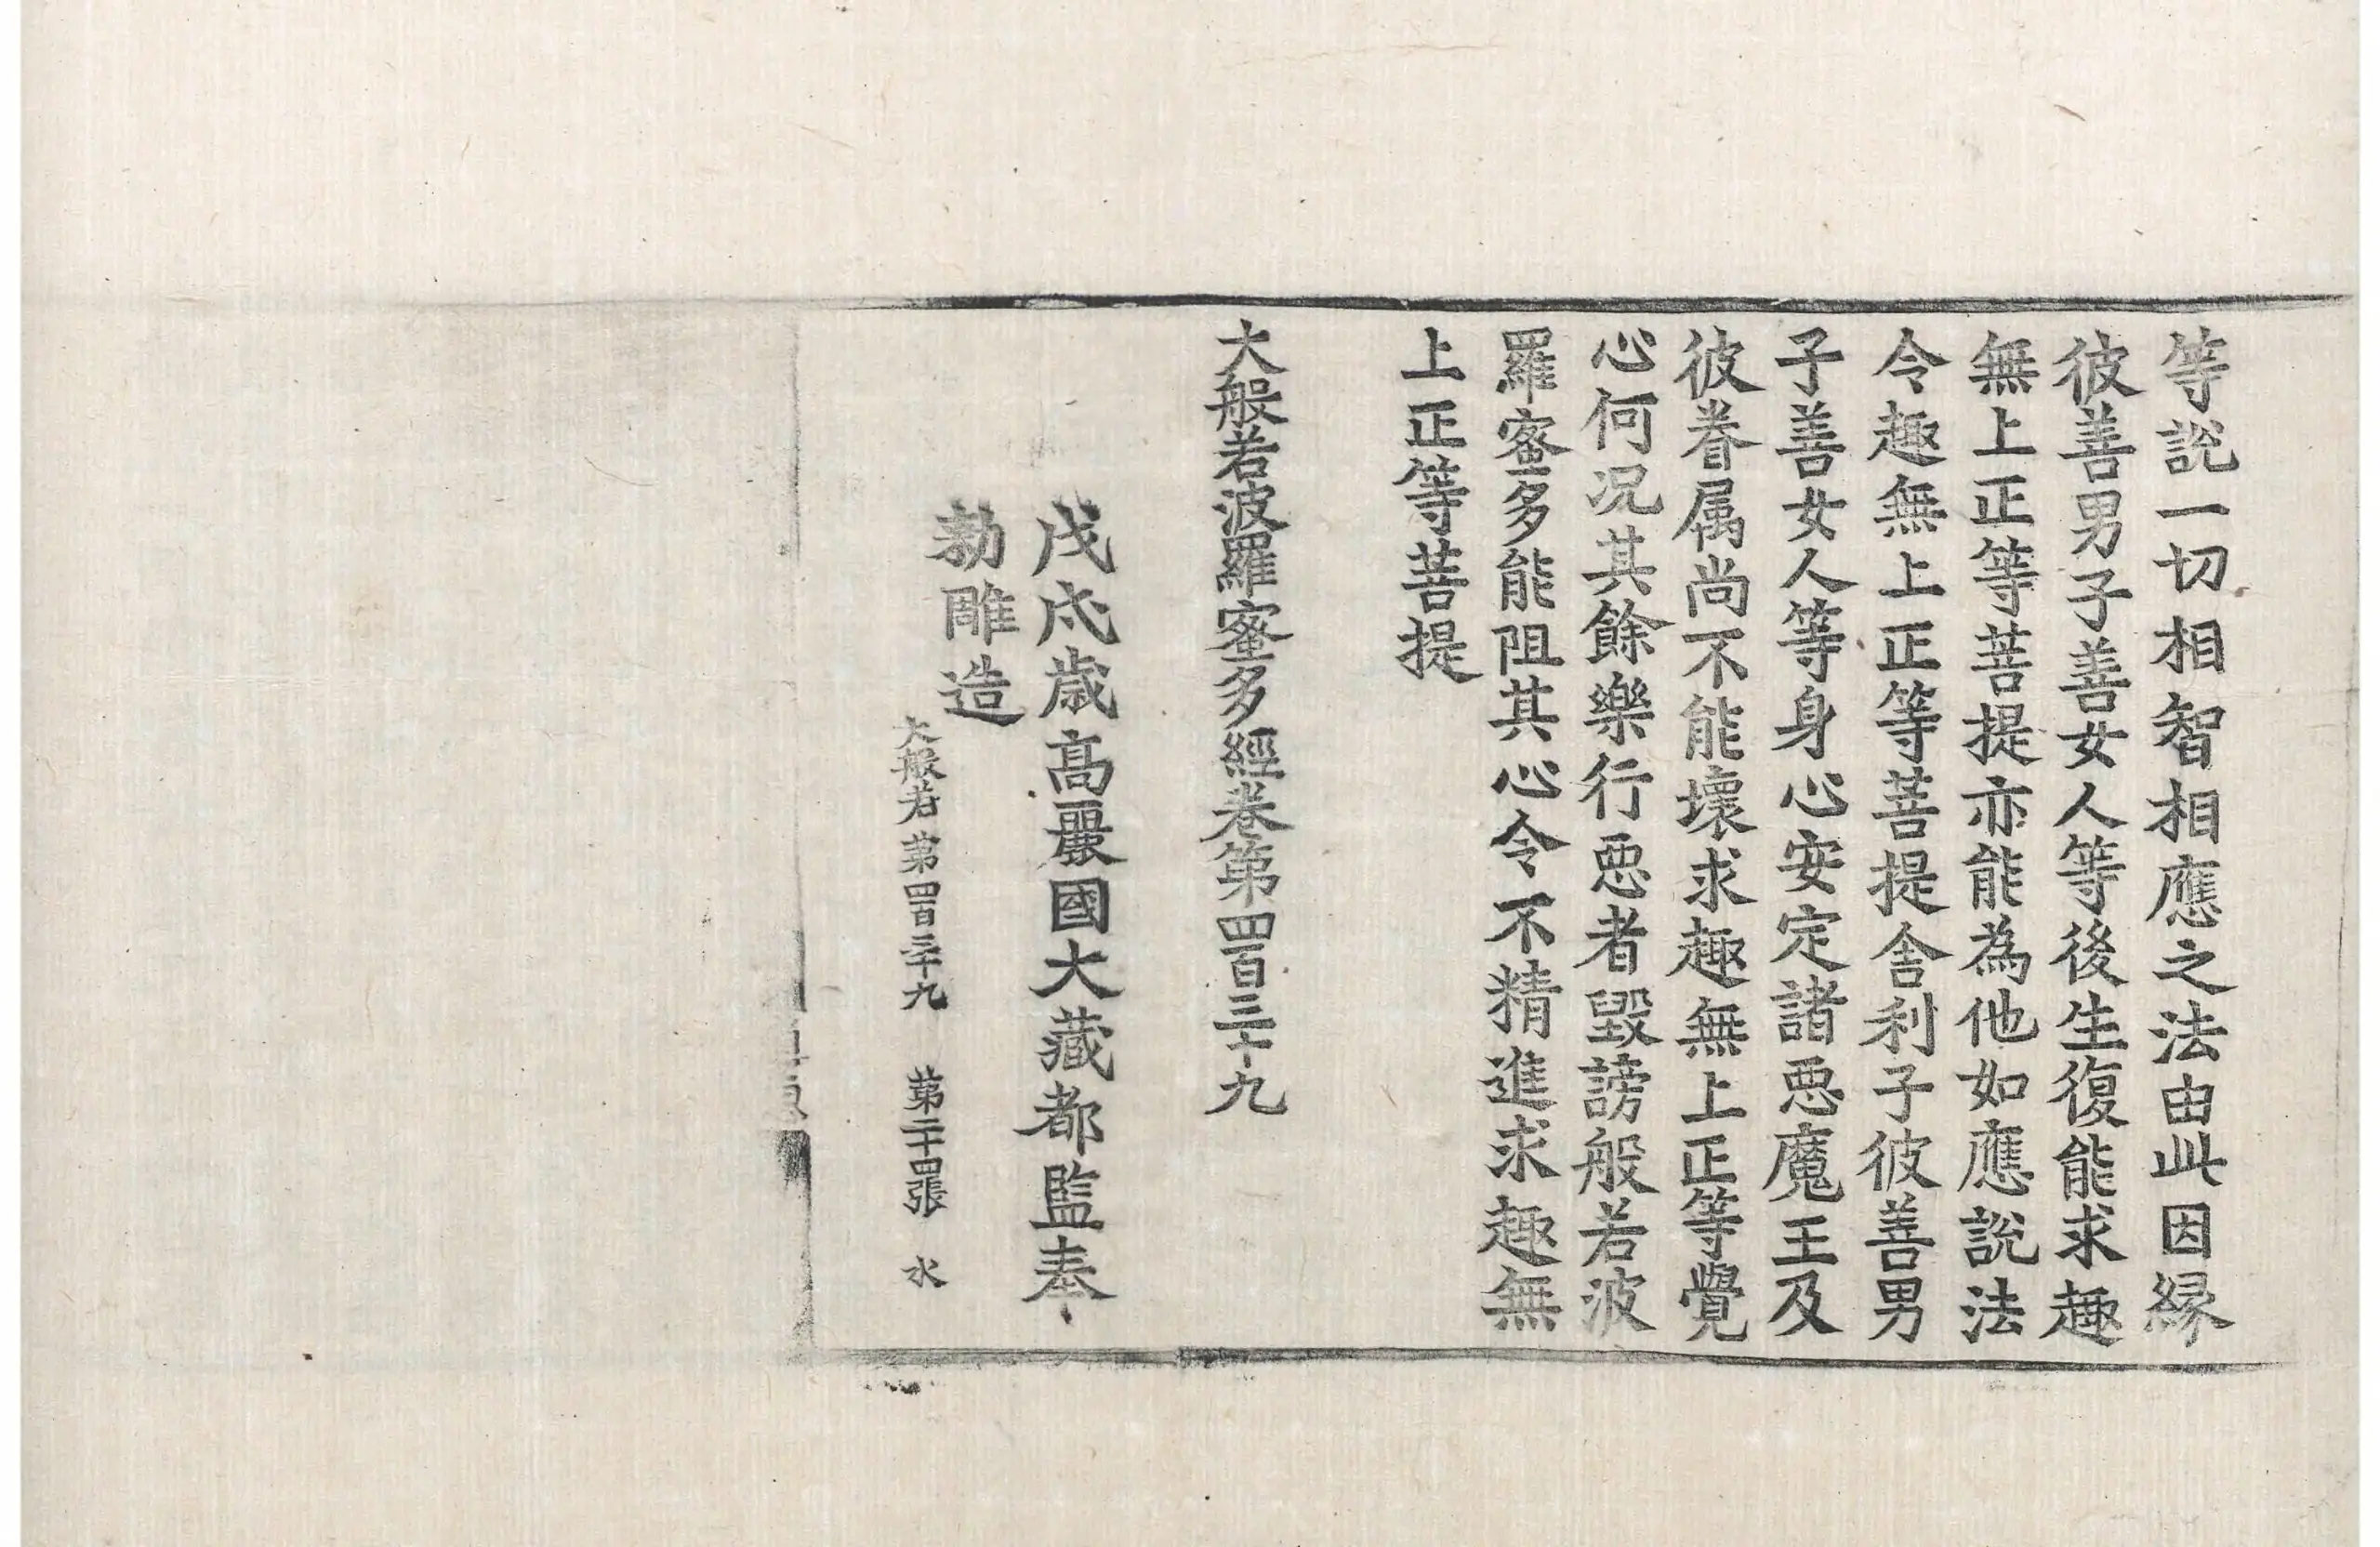 等說一切相智相應之法由此因緣
彼善男子善女人等後生復能求趣
無上正等菩提亦能為他如應說法
令趣無上正等菩提舍利子彼善男
子善女人等身心安定諸惡魔王及
彼眷属尚不能壞求趣無上正等覺
心何况其餘樂行惡者毀謗般若波
羅蜜多能阻其心令不精進求趣無
上正等菩提
大般若波羅蜜多經卷第四百三十九
戊戌歳高麗國大藏都監奉
勑雕造
大般若第四百三十九 第二十四張 水